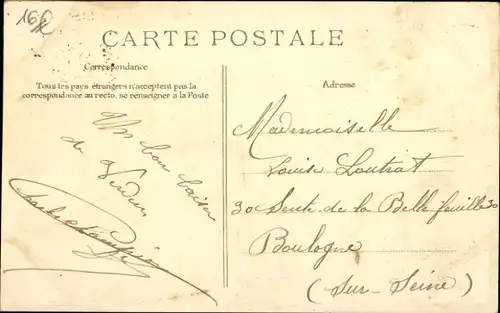 16f
CARTE POSTALE
Correspondance
Tous les pays étrangers n'acceptent pas la
correspondance au recto, se renseigner à la Poste
Adresse
Un bon baiser
de
Mademoiselle
Louise Loutrat
30 Sente de la Belle feuille 30
Boulogne
(sur-Seine)